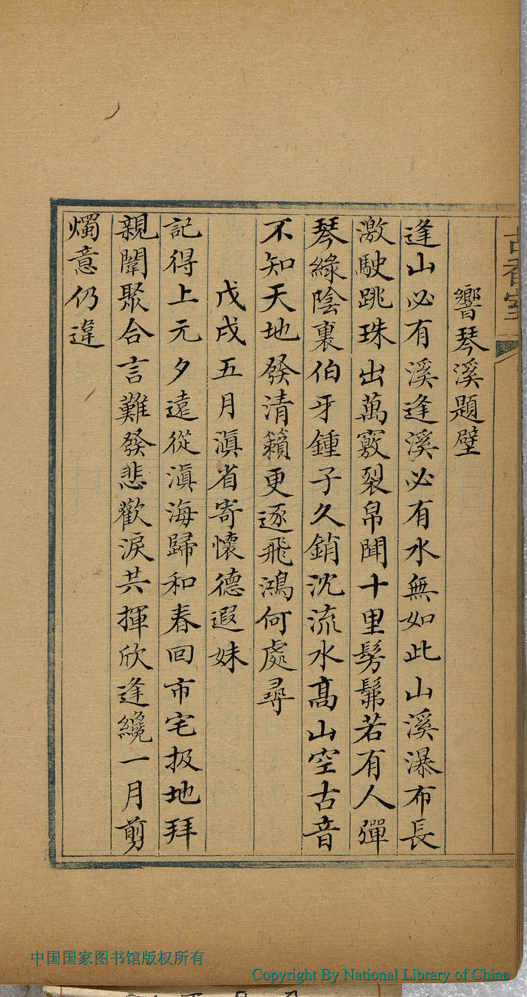 古香室
響琴溪題壁
逢山必有溪逢溪必有水無如此山溪瀑布長
激駛跳珠出萬竅裂帛聞十里髣髴若有人彈
琴綠陰裏伯牙鍾子久銷沈流水高山空古音
不知天地發清籟更逐飛鴻何處尋
戊戌五月滇省寄懷德遐妹
記得上元夕遠從滇海歸和春回市宅扱地拜
親闈聚合言難發悲歡淚共揮欣逢纔一月剪
燭意仍違
中国国家图书馆版权所有
Copyright By National Library of China